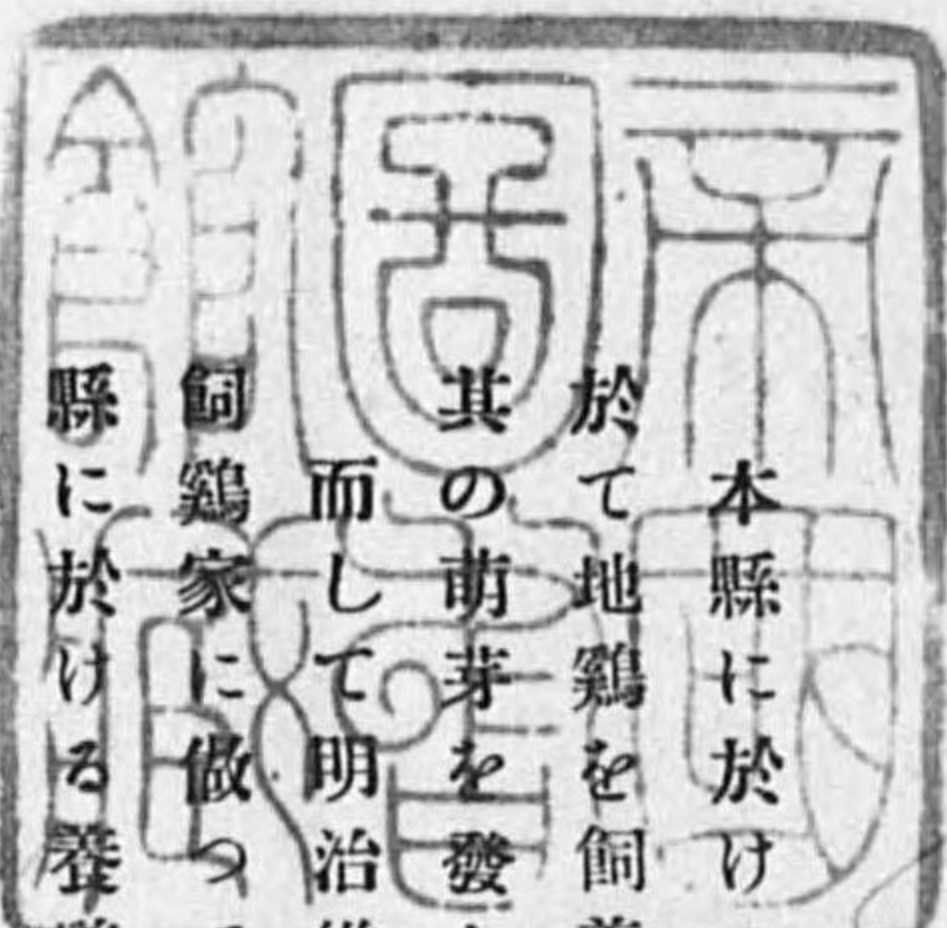 本縣に於け
於て地鷄を飼
其の萌芽を發
而して明治
飼鷄家に倣つ
縣に於ける養
帝國
圖書
館藏